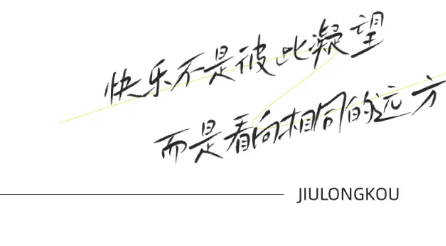 快乐不是彼此凝望
而是看向相同的远方
JIULONGKOU